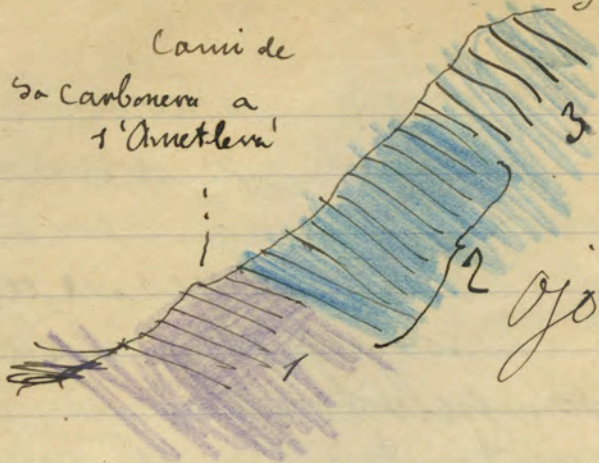 Cami de
Sa Carbonera a
s'Ametlerà
3
2
Ojo
1